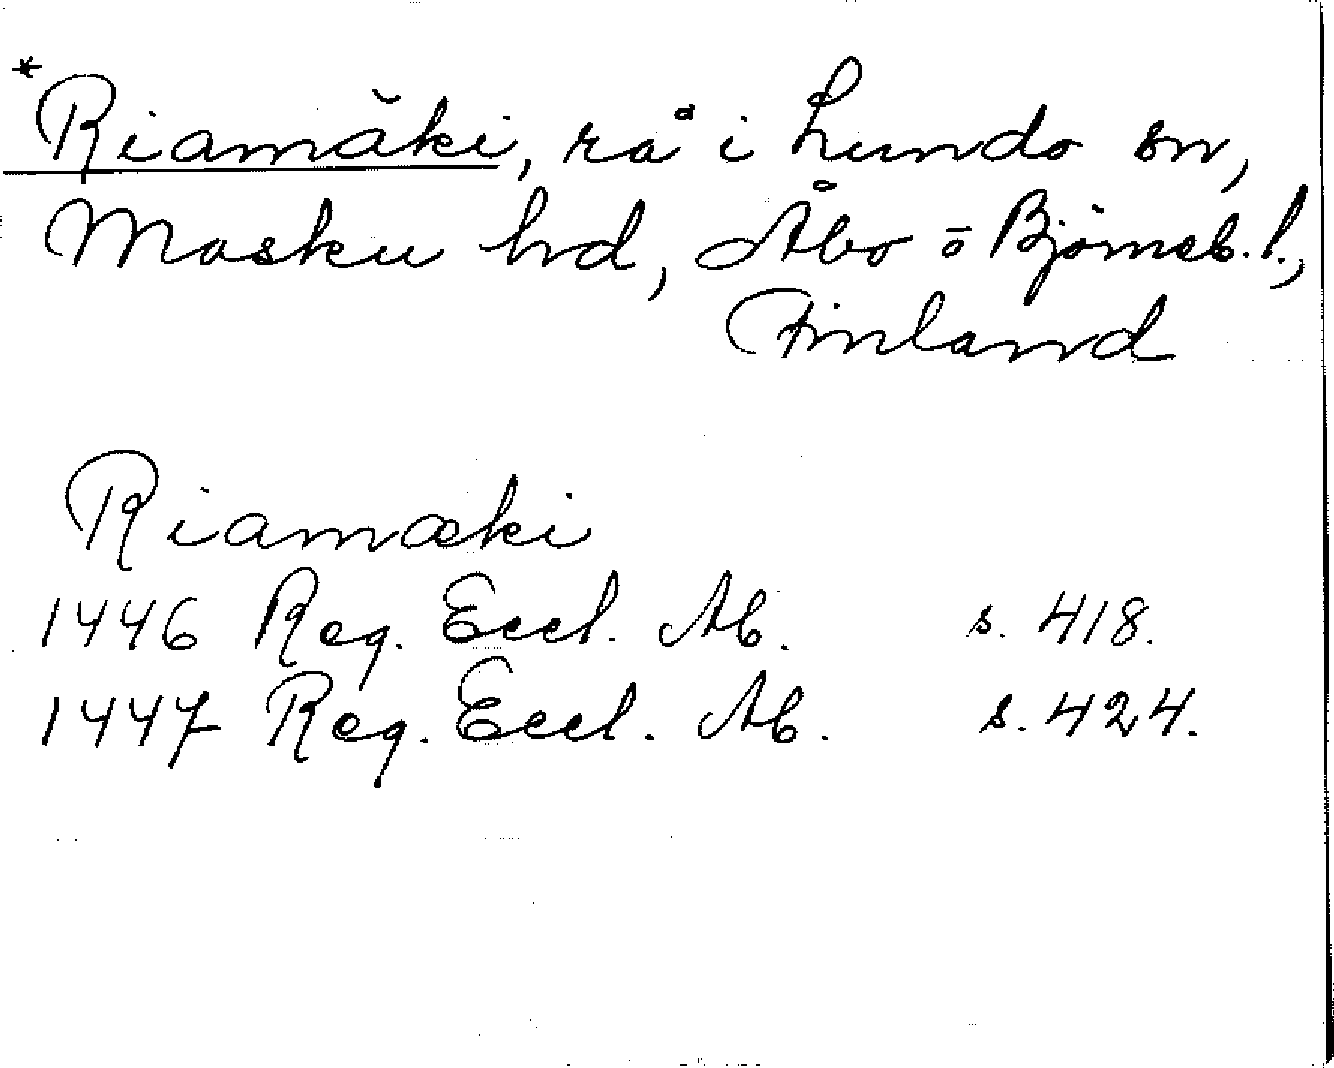 *Riamäki, rå i Lundo sn,
Masku hd, Åbo o Björneb. l.,
Finland
Riamæki
1446 Reg. Eccl. Ab. s. 418.
1447 Reg. Eccl. Ab. s. 424.